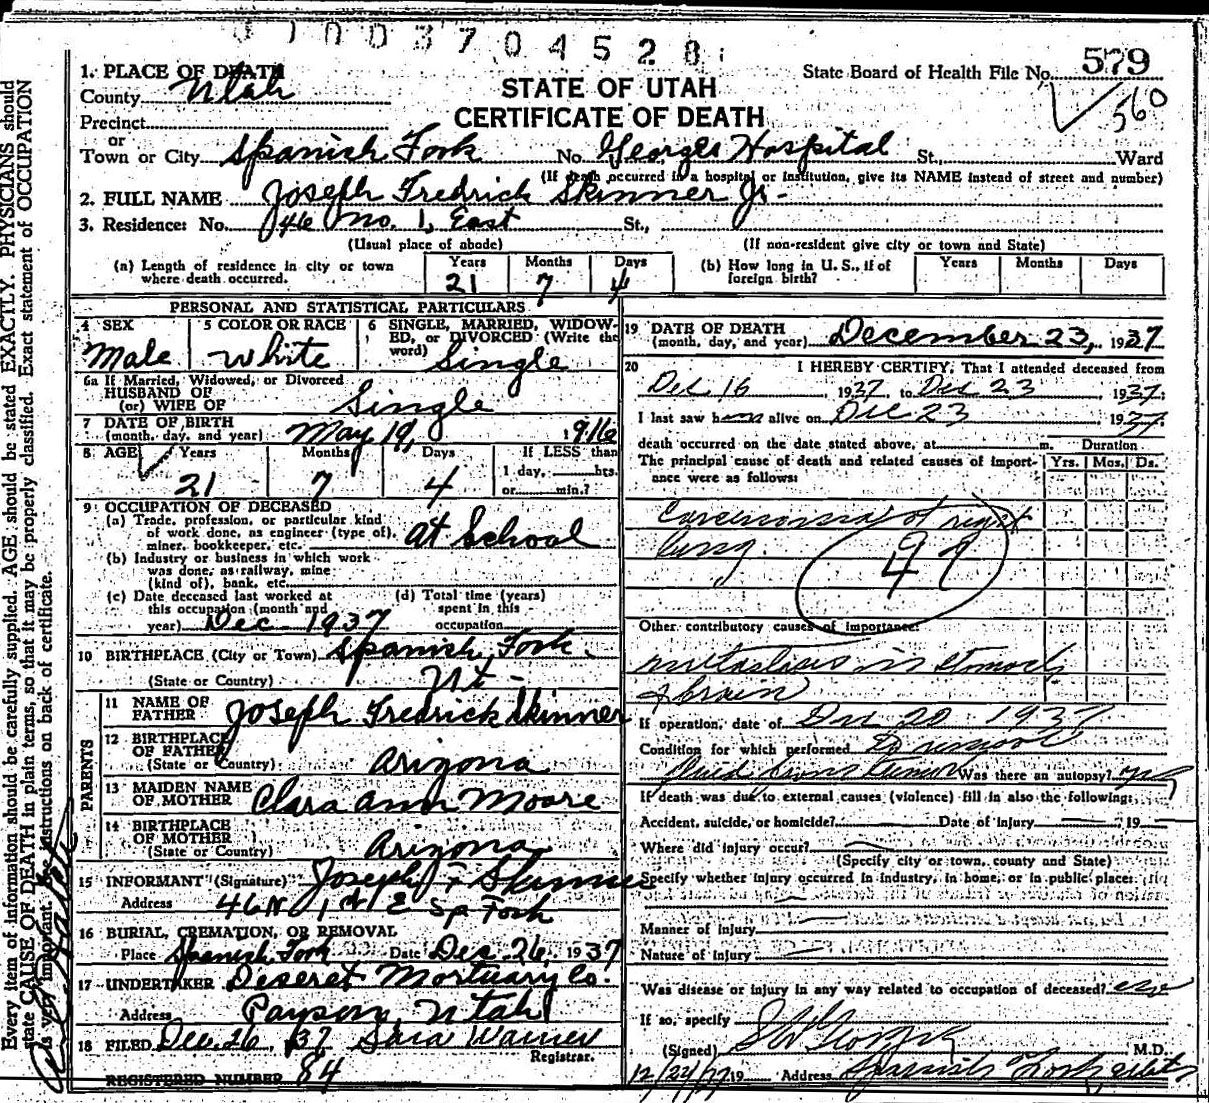 01003704528
1. PLACE OF DEATH
County Utah
Precinct
or
Town or City Spanish Fork No. Georges Hospital St., Ward
STATE OF UTAH
CERTIFICATE OF DEATH
State Board of Health File No. 579
560
(If death occurred in a hospital or institution, give its NAME instead of street and number)
2. FULL NAME Joseph Fredrick Skinner Jr-
3. Residence: No. 46 No. 1, East St.,
(Usual place of abode) (If non-resident give city or town and State)
(a) Length of residence in city or town where death occurred. Years 21 Months 7 Days 4
(b) How long in U. S., if of foreign birth? Years Months Days
PERSONAL AND STATISTICAL PARTICULARS
4 SEX Male
5 COLOR OR RACE White
6 SINGLE, MARRIED, WIDOWED, or DIVORCED (Write the word) Single
6a If Married, Widowed, or Divorced
HUSBAND OF
(or) WIFE OF Single
7 DATE OF BIRTH
(month, day, and year) May 19, 1916
8 AGE Years 21 Months 7 Days 4 If LESS than 1 day, hrs. or min.?
9 OCCUPATION OF DECEASED
(a) Trade, profession, or particular kind of work done, as engineer (type of), miner, bookkeeper, etc. at School
(b) Industry or business in which work was done, as railway, mine (kind of), bank, etc.
(c) Date deceased last worked at this occupation (month and year) Dec 1937
(d) Total time (years) spent in this occupation
10 BIRTHPLACE (City or Town) Spanish Fork.
(State or Country) Ut-
PARENTS
11 NAME OF FATHER Joseph Fredrick Skinner
12 BIRTHPLACE OF FATHER
(State or Country) Arizona
13 MAIDEN NAME OF MOTHER Clara Ann Moore
14 BIRTHPLACE OF MOTHER
(State or Country) Arizona
15 INFORMANT (Signature) Joseph F Skinner
Address 46 N 1st E Sp Fork
16 BURIAL, CREMATION, OR REMOVAL
Place Spanish Fork Date Dec. 26, 1937
17 UNDERTAKER Deseret Mortuary Co.
Address Payson, Utah
18 FILED Dec. 26, 37 Sara Warner
Registrar.
REGISTERED NUMBER 84
19 DATE OF DEATH
(month, day, and year) December 23, 1937
20 I HEREBY CERTIFY, That I attended deceased from
Dec 16, 1937, to Dec 23, 1937.
I last saw him alive on Dec 23, 1937
death occurred on the date stated above, at m. Duration
The principal cause of death and related causes of importance were as follows: Yrs. Mos. Ds.
Carcinoma of right
lung.
Other contributory causes of importance:
metastasis in stomach
& brain
If operation, date of Dec 20 1937
Condition for which performed to remove
fluid from tumor Was there an autopsy?
If death was due to external causes (violence) fill in also the following:
Accident, suicide, or homicide? Date of injury , 19
Where did injury occur?
(Specify city or town, county and State)
Specify whether injury occurred in industry, in home, or in public place:
Manner of injury
Nature of injury
Was disease or injury in any way related to occupation of deceased? no
If so, specify
(Signed) M.D.
12/24/37 19 Address Spanish Fork, Utah
Every item of information should be carefully supplied. AGE should be stated EXACTLY. PHYSICIANS should
state CAUSE OF DEATH in plain terms, so that it may be properly classified. Exact statement of OCCUPATION
is very important. See instructions on back of certificate.